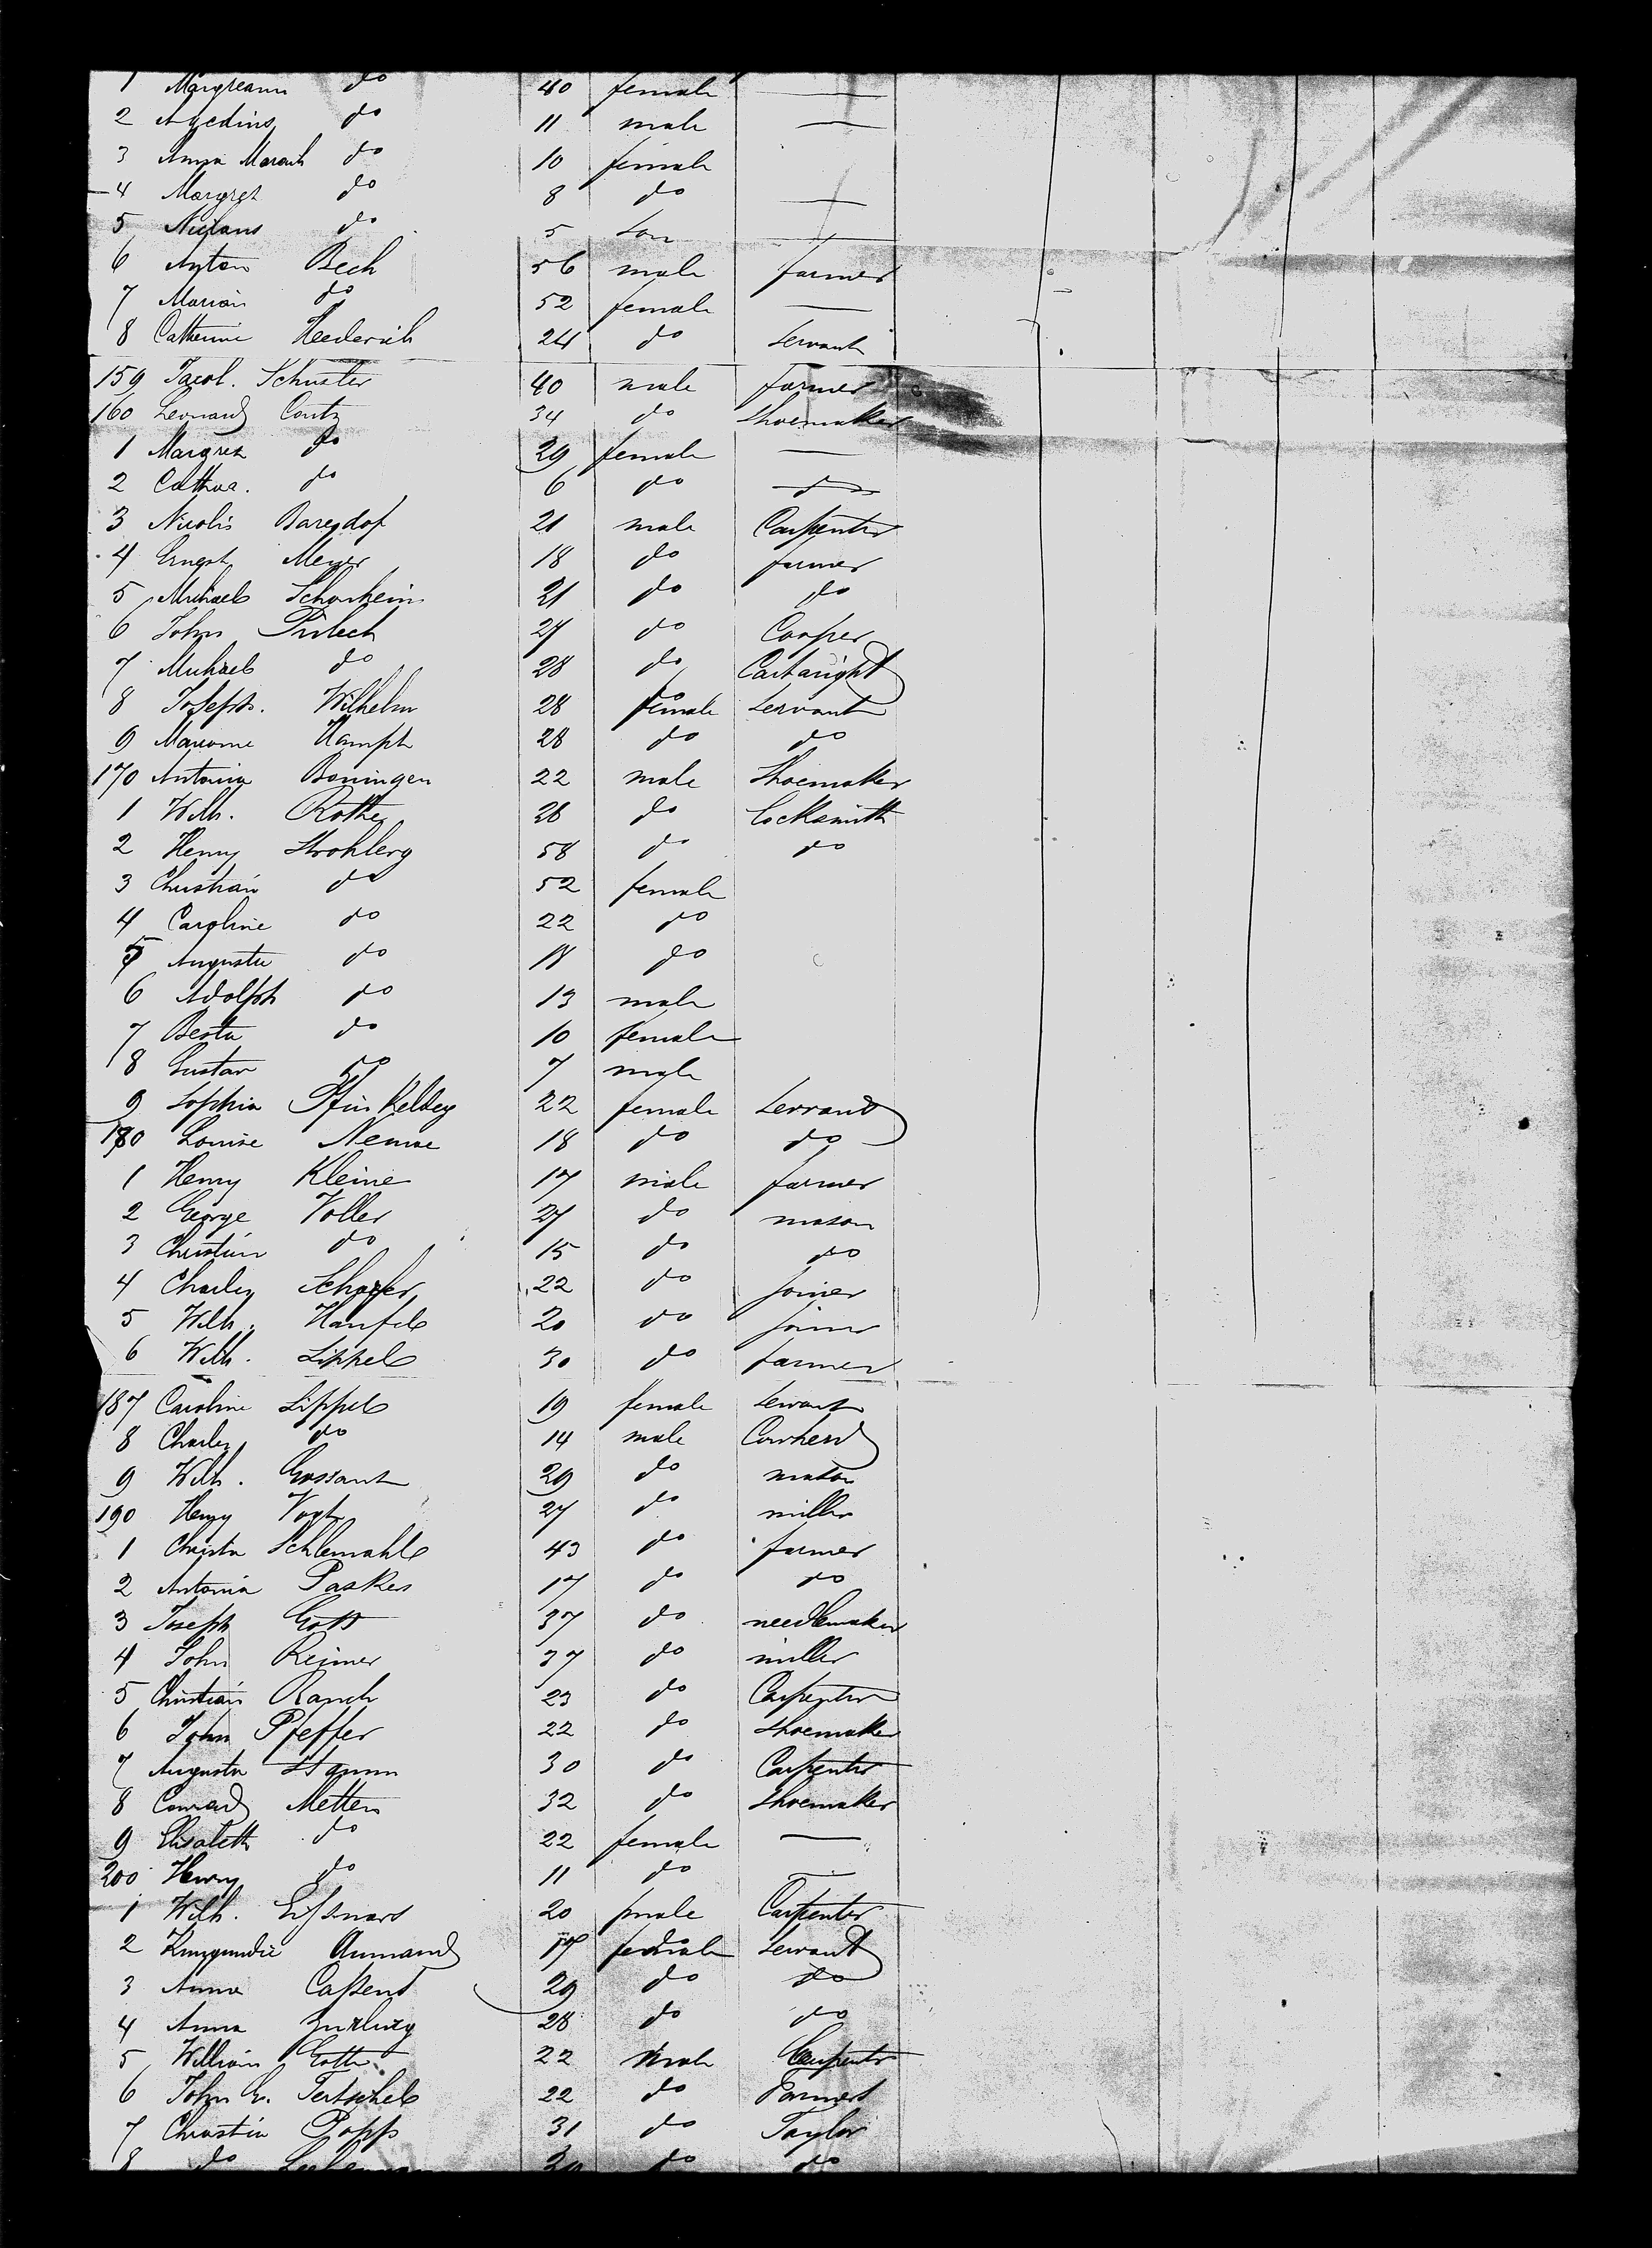 1 Margreann do 40 female —
2 do 11 male —
3 Anna do 10 female
4 Margret do 8 do —
5 do 5 Son —
6 Anton Bech 56 male farmer
7 Marian do 52 female —
8 Catherine Heederich 24 do Servant
159 Jacob. Schuster 40 male farmer
160 Leonard Contz 34 do Shoemaker
1 Margret do 29 female —
2 Cathra. do 6 do
3 Nicolis Baregdof 21 male Carpenter
4 Ernest Meyer 18 do farmer
5 Michael Schorheim 21 do do
6 John 27 do Cooper
7 Michael do 28 do Cartwright
8 Joseph. Wilhelm 28 female Servant
9 Marianne Kamph 28 do do
170 Antonia Boningen 22 male Shoemaker
1 Wilh. Rother 26 do Locksmith
2 Henry Strohberg 58 do do
3 Christian do 52 female
4 Caroline do 22 do
5 Auguste do 18 do
6 Adolph do 13 male
7 Berta do 10 female
8 Gustav do 7 male
9 Sophia 22 female Servant
180 Louise 18 do do
1 Henry Kleine 17 male farmer
2 George Voller 27 do mason
3 Christian do 15 do do
4 Charley Schafer 22 do joiner
5 Wilh. 20 do joiner
6 Wilh. Lippel 30 do farmer
187 Caroline Lippel 19 female Servant
8 Charley do 14 male Cowherd
9 Wilh. Gossant 29 do mason
190 Henry Vogt 27 do miller
1 Christn Schlemahle 43 do farmer
2 Antonia Paskes 17 do do
3 Joseph Gott 37 do needlemaker
4 John Reimer 37 do miller
5 Christian Ranch 23 do Carpenter
6 John Pfeffer 22 do Shoemaker
7 Augusta Stamm 30 do Carpenter
8 Conrad Metten 32 do Shoemaker
9 Elisabeth do 22 female —
200 Henry do 11 do —
1 Wilh. 20 male Carpenter
2 Kunigundie Aumand 17 female Servant
3 Anna 29 do do
4 Anna 28 do do
5 William Gotte 22 male Carpenter
6 John G. Tertschel 22 do Farmer
7 Christin Popp 31 do Taylor
8 do do do